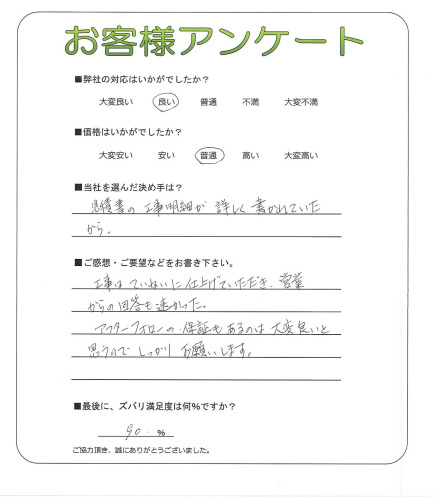 お客様アンケート
■弊社の対応はいかがでしたか?
大変良い 良い 普通 不満 大変不満
■価格はいかがでしたか?
大変安い 安い 普通 高い 大変高い
■当社を選んだ決め手は?
見積書の工事明細が詳しく書かれていた
から。
■ご感想・ご要望などをお書き下さい。
工事はていねいに仕上げていただき、営業
からの回答も速かった。
アフターフォローの保証もあるのは大変良いと
思うのでしっかりお願いします。
■最後に、ズバリ満足度は何%ですか?
90. %
ご協力頂き、誠にありがとうございました。